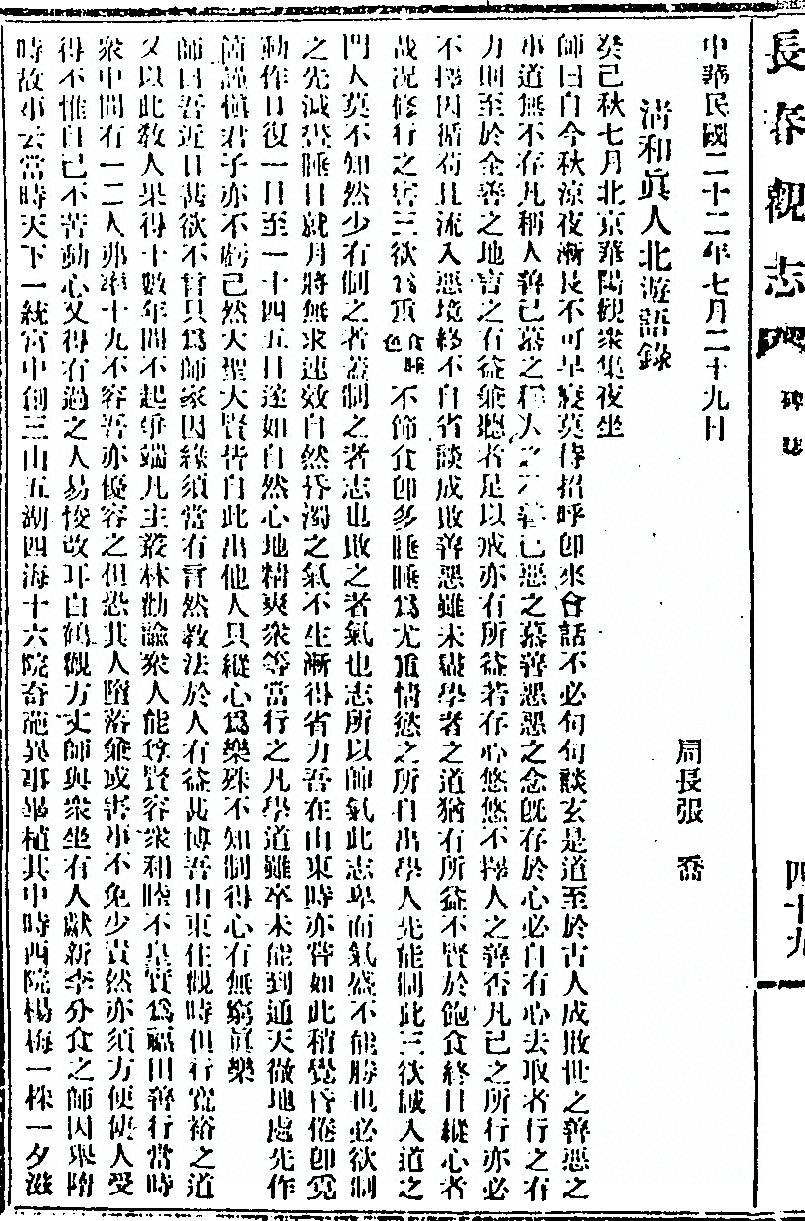 長春觀志
四十九
中華民國二十二年七月二十九日
周長張 喬
清和眞人北遊語錄
癸己秋七月北京華陽觀衆集夜坐
師曰自今秋涼夜漸長不可早寢莫待招呼卽來會話不必句句談玄是道至於古人成敗世之善惡之
事道無不存凡稱人善己慕之稱人之不善己惡之慕善惡惡之念旣存於心必自有心去取者行之有
力則至於全善之地言之有益兼聽者足以戒亦有所益若存心悠悠不擇人之善否凡己之所行亦必
不擇因循苟且流入惡境終不自省談成敗善惡雖未盡學者之道猶有所益不賢於飽食終日縱心者
哉況修行之害三欲爲重食睡色不節食卽多睡睡爲尤重情慾之所自出學人先能制此三欲誠入道之
門人莫不知然少有制之者蓋制之者志也敗之者氣也志所以帥氣此志卑而氣盛不能勝也必欲制
之先減晝睡日就月將無求速效自然昏濁之氣不生漸得省力吾在山東時亦嘗如此稍覺昏倦卽覓
動作日復一日至一十四五日遂如自然心地精爽衆等當行之凡學道雖卒未能到通天徹地處先作
箇謹愼君子亦不虧己然大聖大賢皆自此出他人具縱心爲樂殊不知制得心有無窮眞樂
師曰吾近日甚欲不言只爲師家因緣須當有言然教法於人有益甚博吾山東住觀時但行寬裕之道
又以此教人果得十數年間不起爭端凡主叢林勸諭衆人能尊賢容衆和睦不是實爲福田善行當時
衆中間有一二人弗率十九不容吾亦優容之但恐其人墮落兼或害事不免少責然亦須方便使人受
得不惟自己不苦動心又得有過之人易悛改耳白鶴觀方丈師與衆坐有人獻新李分食之師因舉隋
時故事云當時天下一統宮中創三山五湖四海十六院奇葩異事畢植其中時西院楊梅一株一夕滋